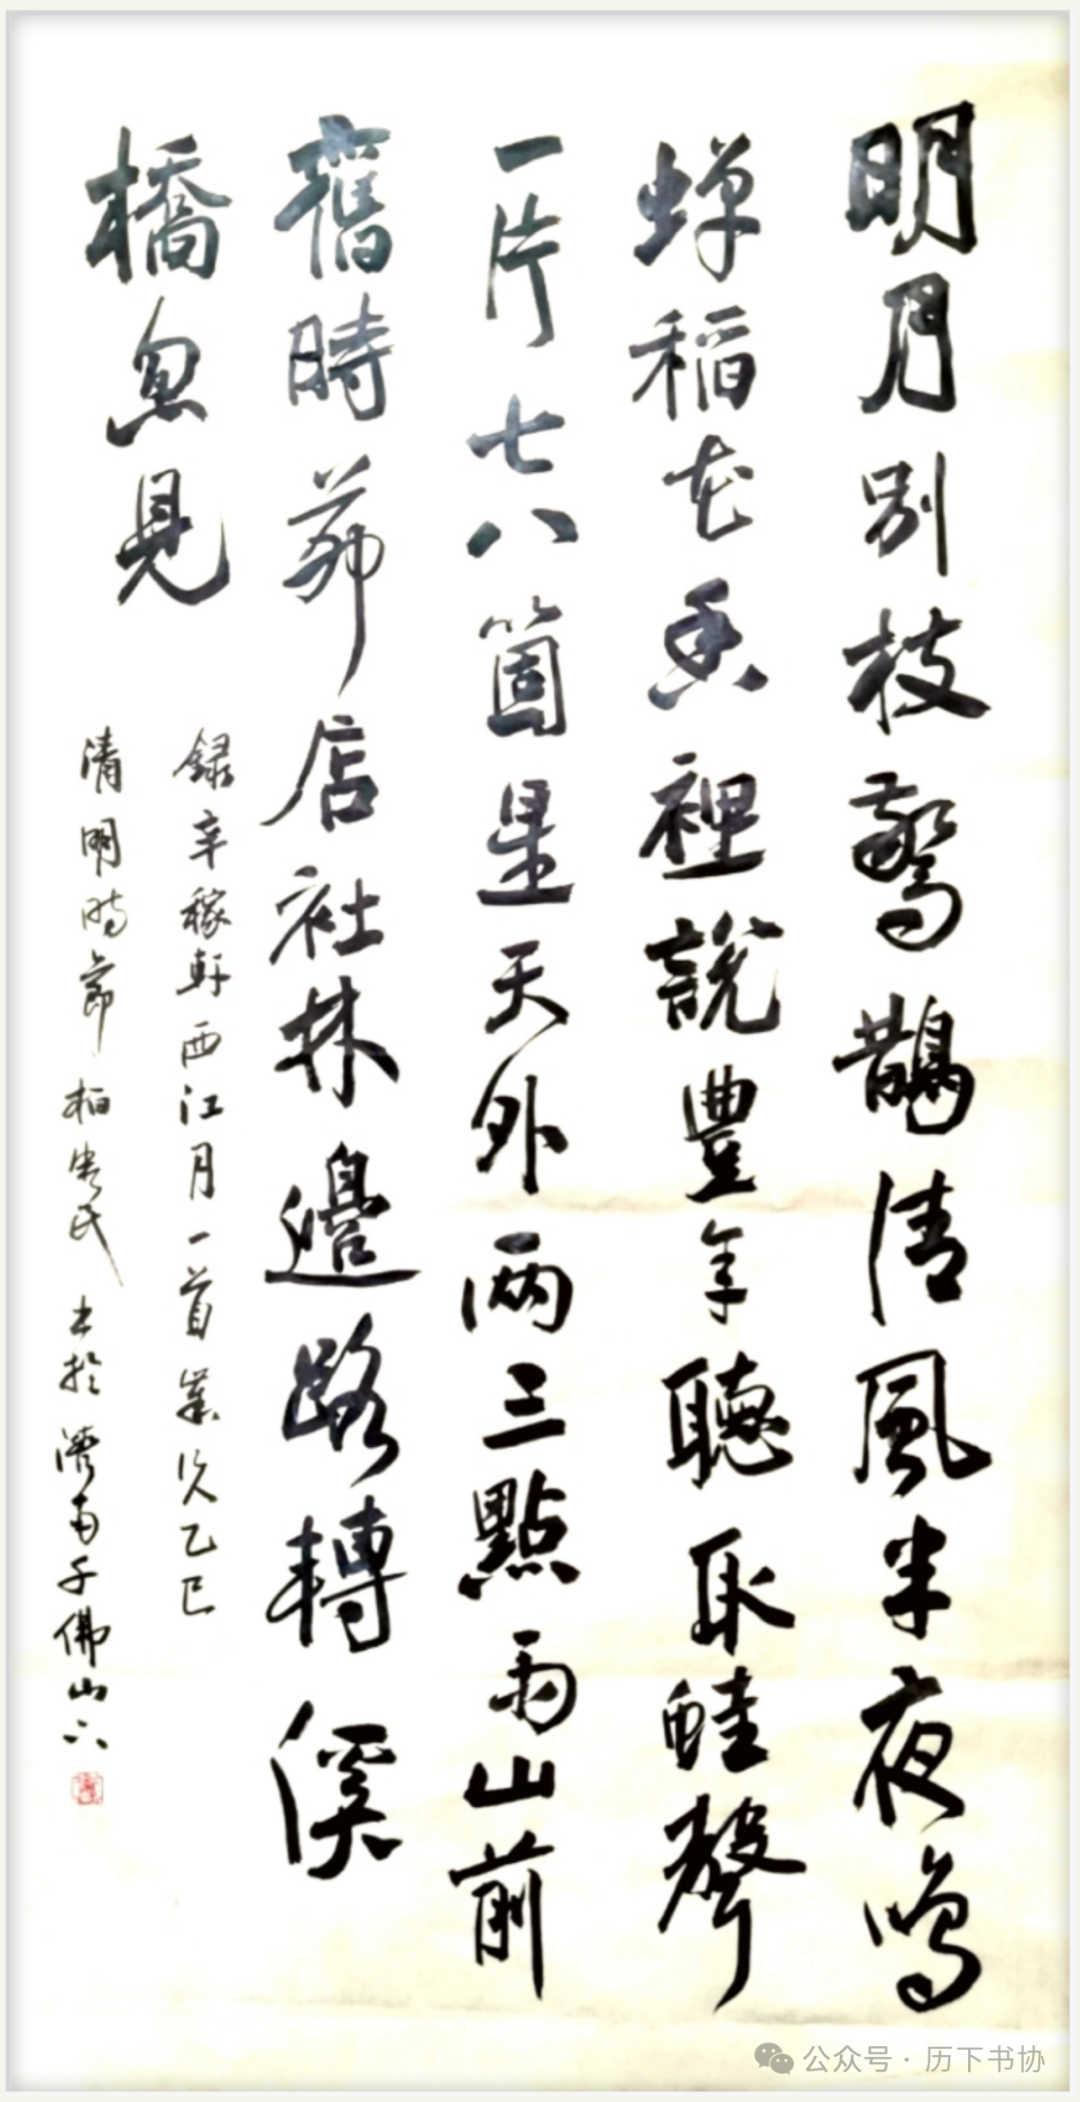 明月別枝驚鵲清風半夜鳴
蟬稻花香裡說豐年聽取蛙聲
一片七八箇星天外兩三點雨山前
舊時茅店社林邊路轉溪
橋忽見
錄辛稼軒西江月一首歲次乙巳
清明時節柏 氏書於濟南千佛山下
公众号·历下书协